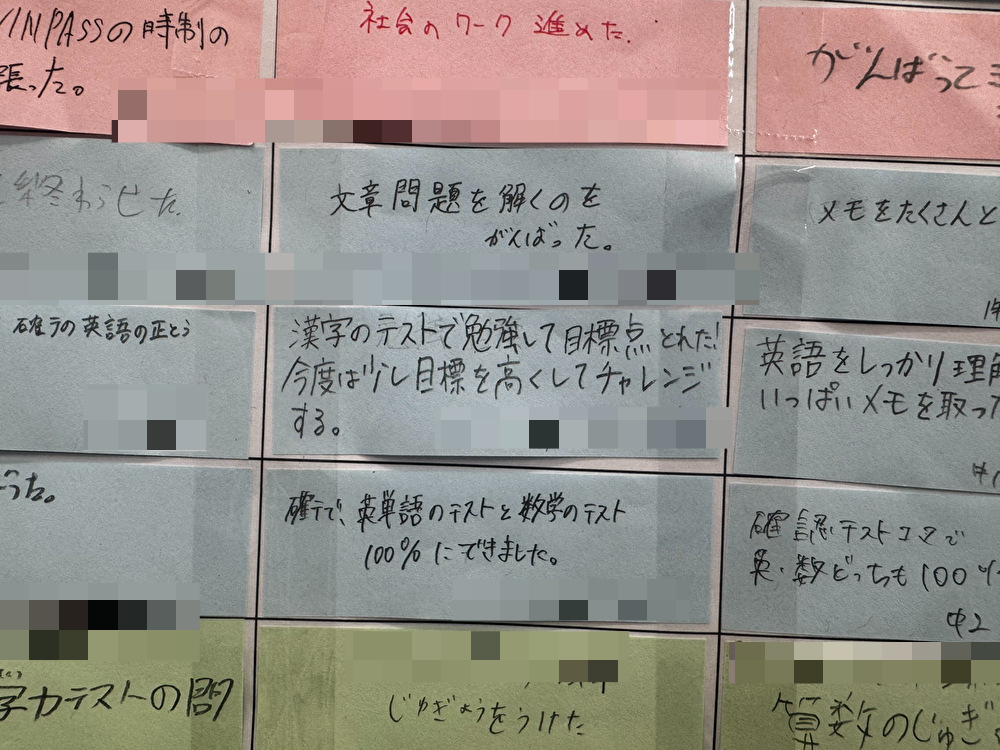 INPASSの時制の
張った。
社会のワーク 進めた.
がんばって
終わらせた.
文章問題を解くのを
がんばった。
メモをたくさんと
確テの英語の正とう
漢字のテストで勉強して目標点とれた!
今度は少し目標を高くしてチャレンジ
する。
英語をしっかり理解
いっぱいメモを取った
確テで、英単語のテストと数学のテスト
100%にできました。
確認テスト1コマで
英・数どっちも100%
中2
学力テストの問
じゅぎょうをうけた
算数のじゅぎ